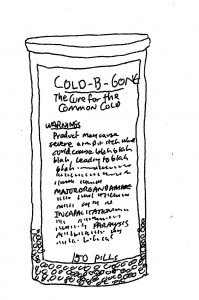 COLD-B-GONE
The Cure for the
Common Cold
WARNINGS
Product may cause
severe armpit itch which
could cause blah blah
blah, leading to blah
blah
MAJOR ORGAN DAMAGE
INCAPACITATION
PARALYSIS
150 PILLS